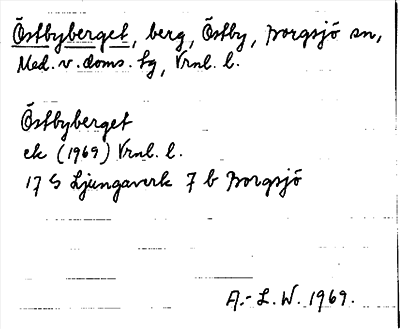 Östbyberget, berg, Östby, Borgsjö sn,
Med. v. doms. tg, Vrnl. l.
Östbyberget
ek (1969) Vrnl. l.
17 G Ljungaverk 7 b Borgsjö
A.-L.W. 1969.